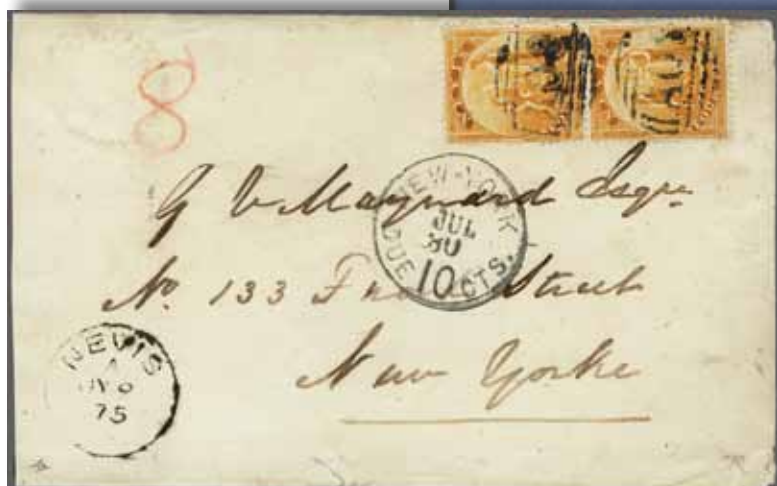 8
G V Maynard Esqre
NEW-YORK
JUL
30
DUE 10 CTS.
No 133 Front Street
New Yorke
NEVIS
A
75